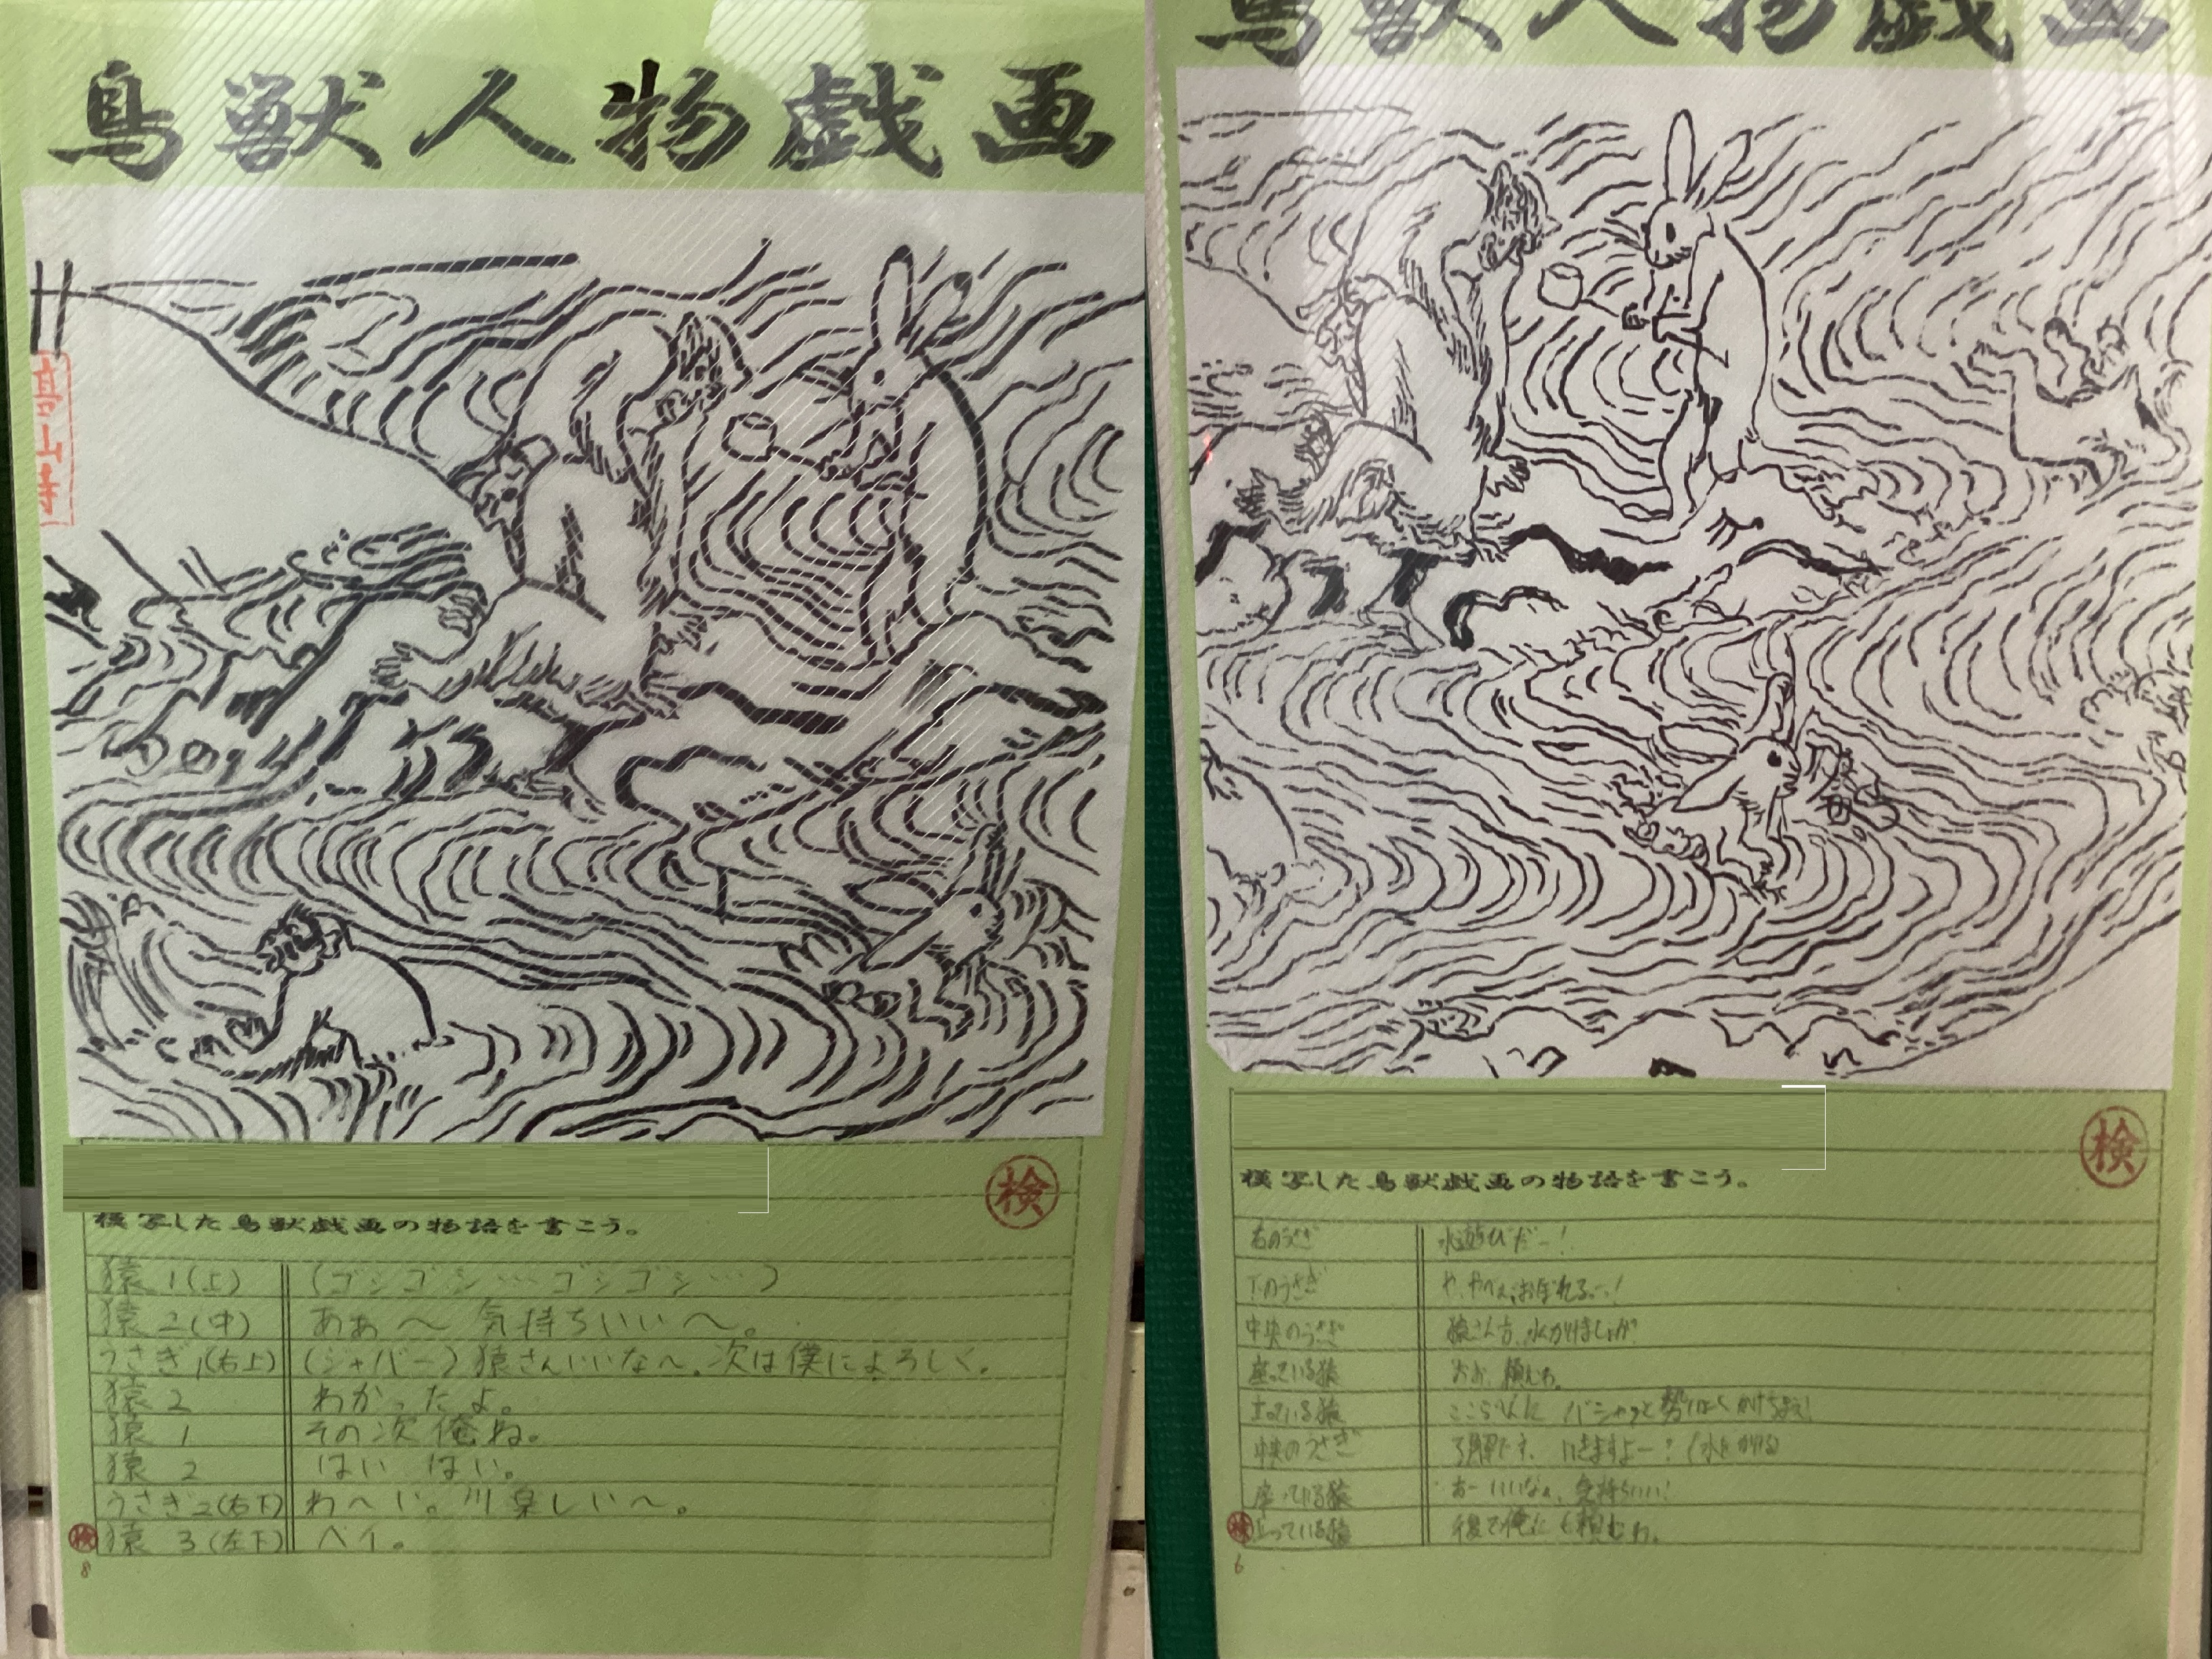 鳥獣人物戯画
高山寺
検
模写した鳥獣戯画の物語を書こう。
猿1(上) (ゴシゴシ…ゴシゴシ…)
猿2(中) あぁ〜気持ちいい〜。
うさぎ1(右上) (ジャバー)猿さんいいな〜。次は僕によろしく。
猿2 わかったよ。
猿1 その次俺ね。
猿2 はい はい。
うさぎ2(右下) わ〜い。川楽しい〜。
検 猿3(左下) ベイ。
8
鳥獣人物戯画
検
模写した鳥獣戯画の物語を書こう。
右のうさぎ 水遊びだー!
下のうさぎ や、やべぇ、おぼれる…!
中央のうさぎ 猿さん方、水かけましょか
座っている猿 おお、頼むわ。
立っている猿 ここらへんに バシャッと勢いよくかけちまえ!
中央のうさぎ 了解です。いきますよー?(水をかける)
座っている猿 おーいいなぁ、気持ちいい!
検 立っている猿 後で俺にも頼むわ。
6